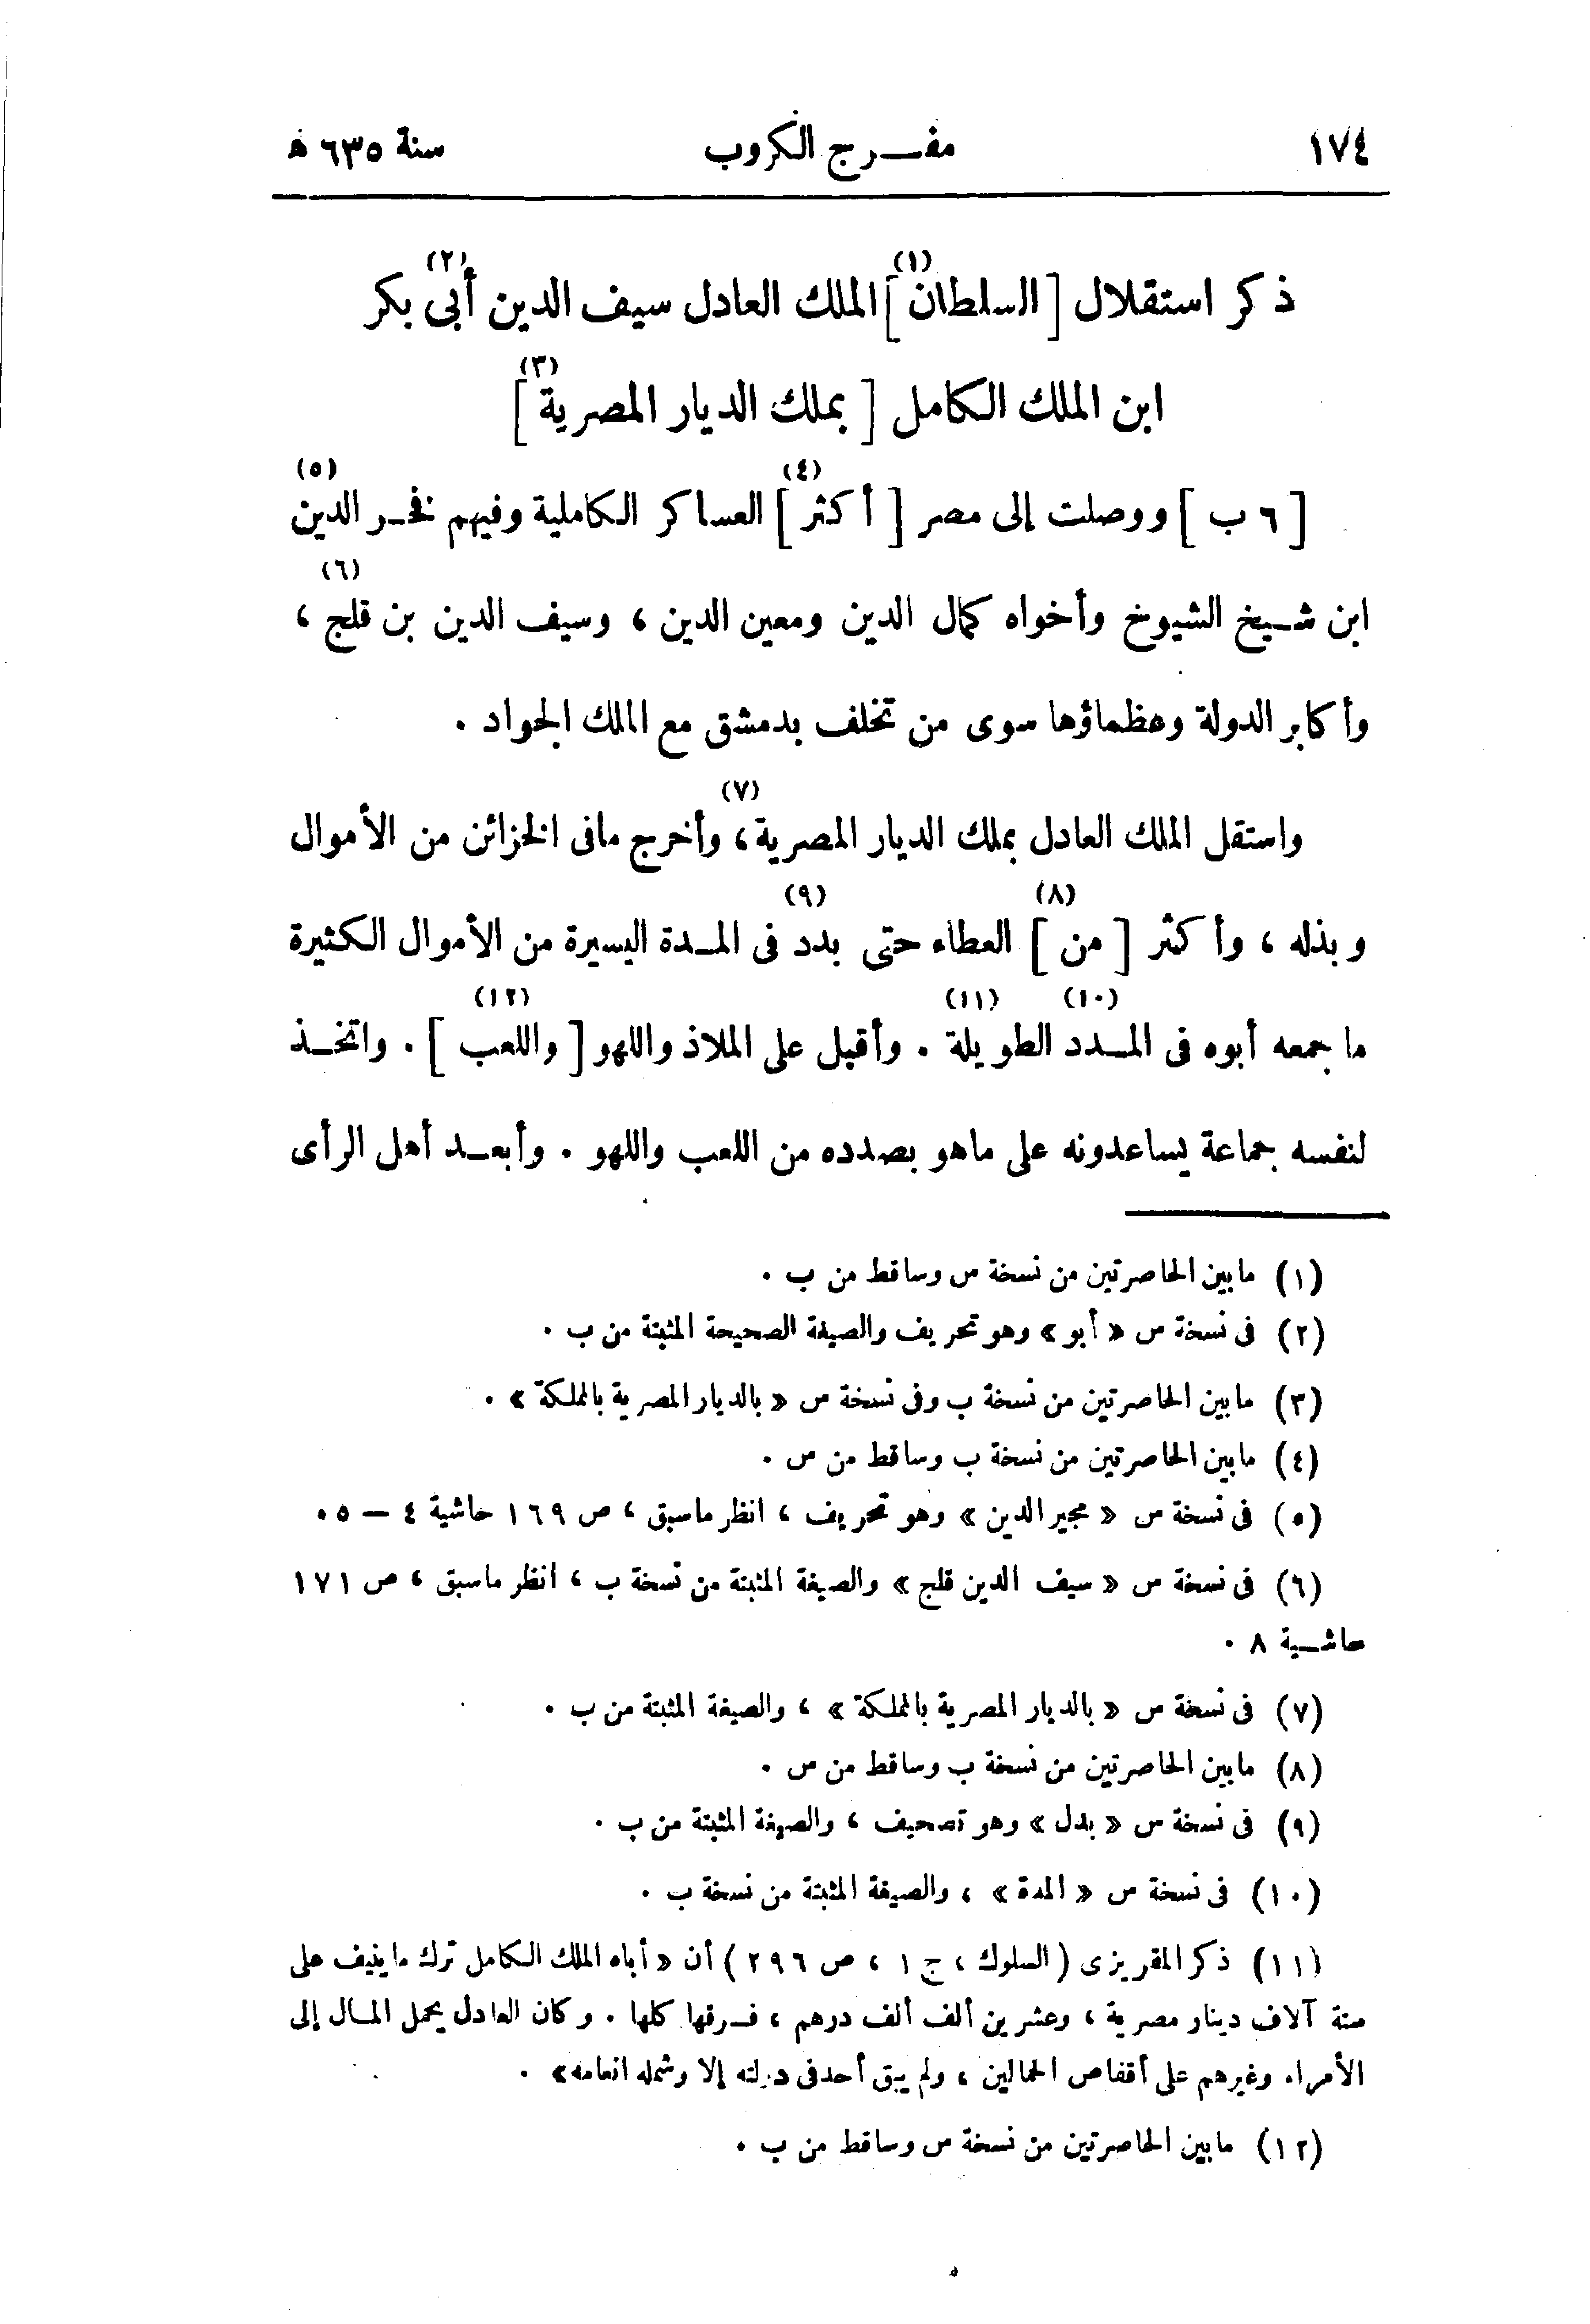 ١٧٤ مفـــرج الكروب سنة ٦٣٥ هـ
ذكر استقلال [ السلطان(١) ] الملك العادل سيف الدين أبى(٢) بكر
ابن الملك الكامل [ بملك الديار المصرية(٣) ]
[ ٦ ب ] ووصلت إلى مصر [ أكثر(٤) ] العساكر الكاملية وفيهم فخـر الدين(٥)
ابن شـيخ الشيوخ وأخواه كمال الدين ومعين الدين ، وسيف الدين بن قلج(٦) ،
وأكابر الدولة وعظماؤها سوى من تخلف بدمشق مع الملك الجواد .
واستقل الملك العادل بملك الديار المصرية(٧) ، وأخرج مافى الخزائن من الأموال
وبذله ، وأكثر [ من(٨) ] العطاء حتى بدد(٩) فى المـدة اليسيرة من الأموال الكثيرة
ما جمعه أبوه فى المـدد(١٠) الطويلة(١١) . وأقبل على الملاذ واللهو [ واللعب(١٢) ] . واتخـذ
لنفسه جماعة يساعدونه على ماهو بصدده من اللعب واللهو . وأبعـد أهل الرأى
(١) مابين الحاصرتين من نسخة س وساقط من ب .
(٢) فى نسخة س « أبو » وهو تحريف والصيغة الصحيحة المثبتة من ب .
(٣) مابين الحاصرتين من نسخة ب وفى نسخة س « بالديار المصرية بالمملكة » .
(٤) مابين الحاصرتين من نسخة ب وساقط من س .
(٥) فى نسخة س « مجير الدين » وهو تحريف ، انظر ماسبق ، ص ١٦٩ حاشية ٤ – ٥ .
(٦) فى نسخة س « سيف الدين قلج » والصيغة المثبتة من نسخة ب ، انظر ماسبق ، ص ١٧١
حاشـية ٨ .
(٧) فى نسخة س « بالديار المصرية بالمملكة » ، والصيغة المثبتة من ب .
(٨) مابين الحاصرتين من نسخة ب وساقط من س .
(٩) فى نسخة س « بدل » وهو تصحيف ، والصيغة المثبتة من ب .
(١٠) فى نسخة س « المدة » ، والصيغة المثبتة من نسخة ب .
(١١) ذكر المقريزى ( السلوك ، ج ١ ، ص ٢٩٦ ) أن « أباه الملك الكامل ترك ماينيف على
ستة آلاف دينار مصرية ، وعشرين ألف ألف درهم ، فـرقها كلها . وكان العادل يحمل المـال إلى
الأمراء وغيرهم على أقفاص الحمالين ، ولم يبق أحد فى دولته إلا وشمله انعامه » .
(١٢) مابين الحاصرتين من نسخة س وساقط من ب .